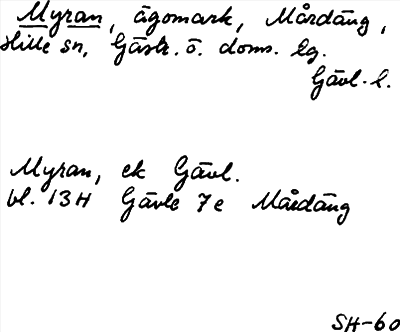 Myran, ägomark, Mårdäng,
Hille sn, Gästr. ö. doms. lg.
Gävl. l.
Myran, ek Gävl.
bl. 13H Gävle 7e Mårdäng
SH-60